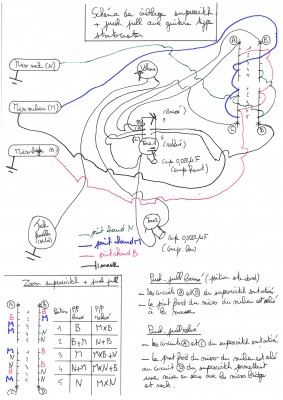 Schéma de câblage superswitch
+ push pull sur guitare type
stratocaster
Micro neck (N)
Micro milieu (M)
Micro bridge (B)
Volume
(baissé)
(relevé)
Tone 1
Tone 2
Jack
A
B
C
D
point chaud N
point chaud M
point chaud B
masse
Zoom superswitch + push pull
Position
P/P
baissé
P/P
relevé
1 B M×B
2 B+M N+B
3 M M×B+N
4 N+M M×N+B
5 N M×N
Push-pull baissé (position standard)
- les circuits A et B du superswitch sont activés
- le point froid du micro du milieu est relié
à la masse
Push-pull relevé
- les circuits C et D du superswitch sont activés
- le point froid du micro du milieu est relié au
circuit D du superswitch permettant
une mise en série avec les micros bridge
et neck.